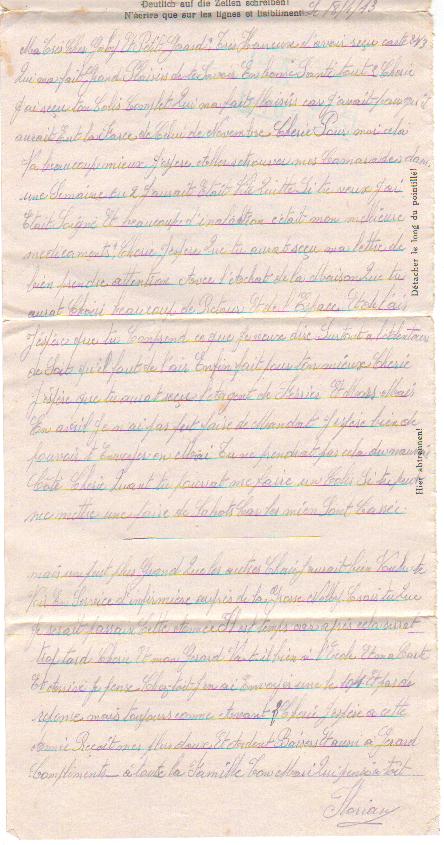 Deutlich auf die Zeilen schreiben!
N'écrire que sur les lignes et lisiblement. le 18/4/43
Ma Très Chère Gaby Et Petit Gérard? Très Heureux d'avoir reçu carte 2 3
Qui ma fait Grand Plaisir de te Savoir En bonne Santé tout 2 Cherie
J'ai reçu ton Colis Complet Qui ma fait Plaisir car J'avait peur qu'il
aurait Eut la Casse de Celui de Novembre Cherie Pour moi cela
Va beaucoup mieux J'espere aller retrouver mes Camarades dans
une Semaine ou 2 J'aurait Etait Vite Quitte Si tu veux J'ai
Etait Soigné Et beaucoup d'inalation c'était mon meilleure
medicaments! Cherie J'espère Que tu aurat reçu ma lettre de
bien prendre attention Avec l'Achat de la Maison Que tu
aurat Choisi beaucoup de Retour Et de l'Espace Et de l'air
J'espère que tu Comprend ce que Je veux dire Surtout
de Sorte qu'il faut de l'air Enfin fait pour ton mieux Cherie
J'espère que tu aurat reçu l'argent de Fevrier Et Mars Mais
En avril Je n'ai pas fait faire de Mandat J'espère bien de
pouvoir t'Envoyer en Mai Tu ne prendrat pas cela du mauvais
Côté Cherie Quant tu pourrat me faire un Colis Si tu peux
me mettre une paire de Sabots Car les mien Sont Cassé
mais un peut plus Grand Que les autres Cherie J'aurait bien Voulu te
Voir En Service d'infirmière auprès de la Grosse Nelly Crois tu Que
Je serait parrain Cette Année Il est temps car après cela serrat
trop tard Cherie Et mon Gérard Va t'il bien a l'Ecole Et ma Carte
Et Je pense Cherie J'en ai Envoyer une le Et pas de
réponse mais toujours comme Avant Cherie J'espère a cette
Année Recoit mes plus doux Et Ardent Baisers Et aussi à Gérard
Compliments à toute la Famille Ton Mari Qui pense a toi
Florian
Détacher le long du pointillé!
Hier abtrennen!